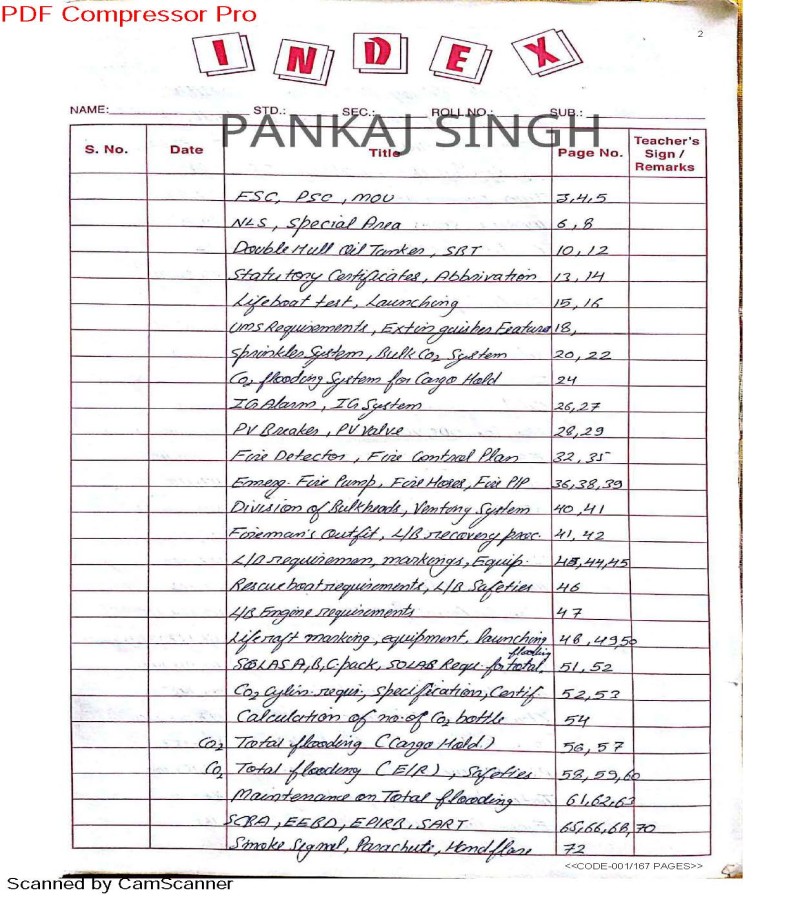 PDF Compressor Pro
2
INDEX
NAME: STD.: SEC.: ROLL NO.: SUB.:
PANKAJ SINGH
S. No. Date Title Page No. Teacher's Sign / Remarks
FSC, PSC, MOU 3,4,5
NLS, Special Area 6, 8
Double Hull Oil Tanker, SBT 10, 12
Statutory Certificates, Abbrivation 13, 14
Lifeboat test, Launching 15, 16
UMS Requirements, Extinguisher Feature 18,
Sprinkler System, Bulk Co2 System 20, 22
Co2 flooding System for Cargo Hold 24
IG Alarm, IG System 26,27
PV Breaker, PV Valve 28,29
Fire Detector, Fire Control Plan 32, 35
Emerg. Fire Pump, Fire Hoses, Fire P/P 36,38,39
Division of Bulkheads, Venting System 40,41
Fireman's Outfit, L/B recovery proc. 41, 42
L/B requiremen, markings, Equip. 43,44,45
Rescue boat requirements, L/B Safeties 46
L/B Engine requirements 47
Liferaft marking, equipment, launching 48,49,50
SOLAS A,B,C-pack, SOLAS Requ. for total flooding 51, 52
Co2 Cylin. requi, Specification, Certif 52,53
Calculation of no. of Co2 bottle 54
Co2 Total flooding (Cargo Hold.) 56, 57
Co2 Total flooding (E/R), Safeties 58, 59, 60
Maintenance on Total flooding 61,62,63
SCBA, EEBD, EPIRB, SART 65,66,68,70
Smoke Signal, Parachute, Handflare 72
<<CODE-001/167 PAGES>>
Scanned by CamScanner